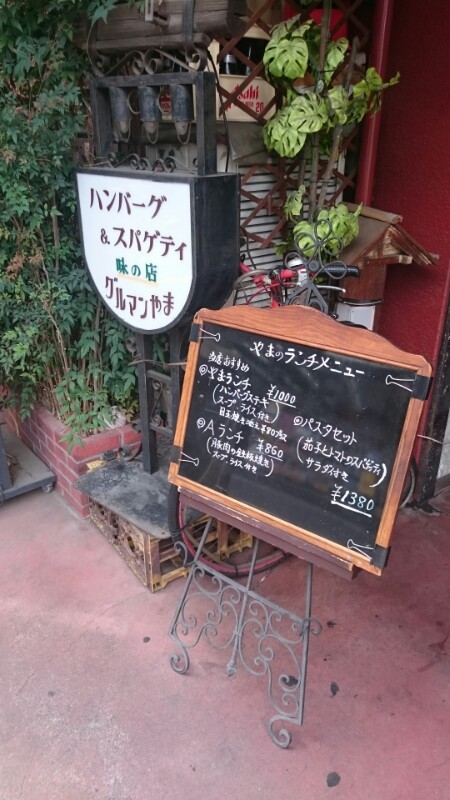 Asahi
20
ハンバーグ
& スパゲティ
味の店
グルマンやま
やまのランチメニュー
当店おすすめ
◎やまランチ ¥1000
(ハンバーグステキ
スープ ライス付き)
目玉焼き ¥80プラス
◎Aランチ ¥860
(豚肉の鉄板焼き
スープ、ライス付き)
◎パスタセット
(茄子とトマトのスパゲティ
サラダ付き)
¥1380